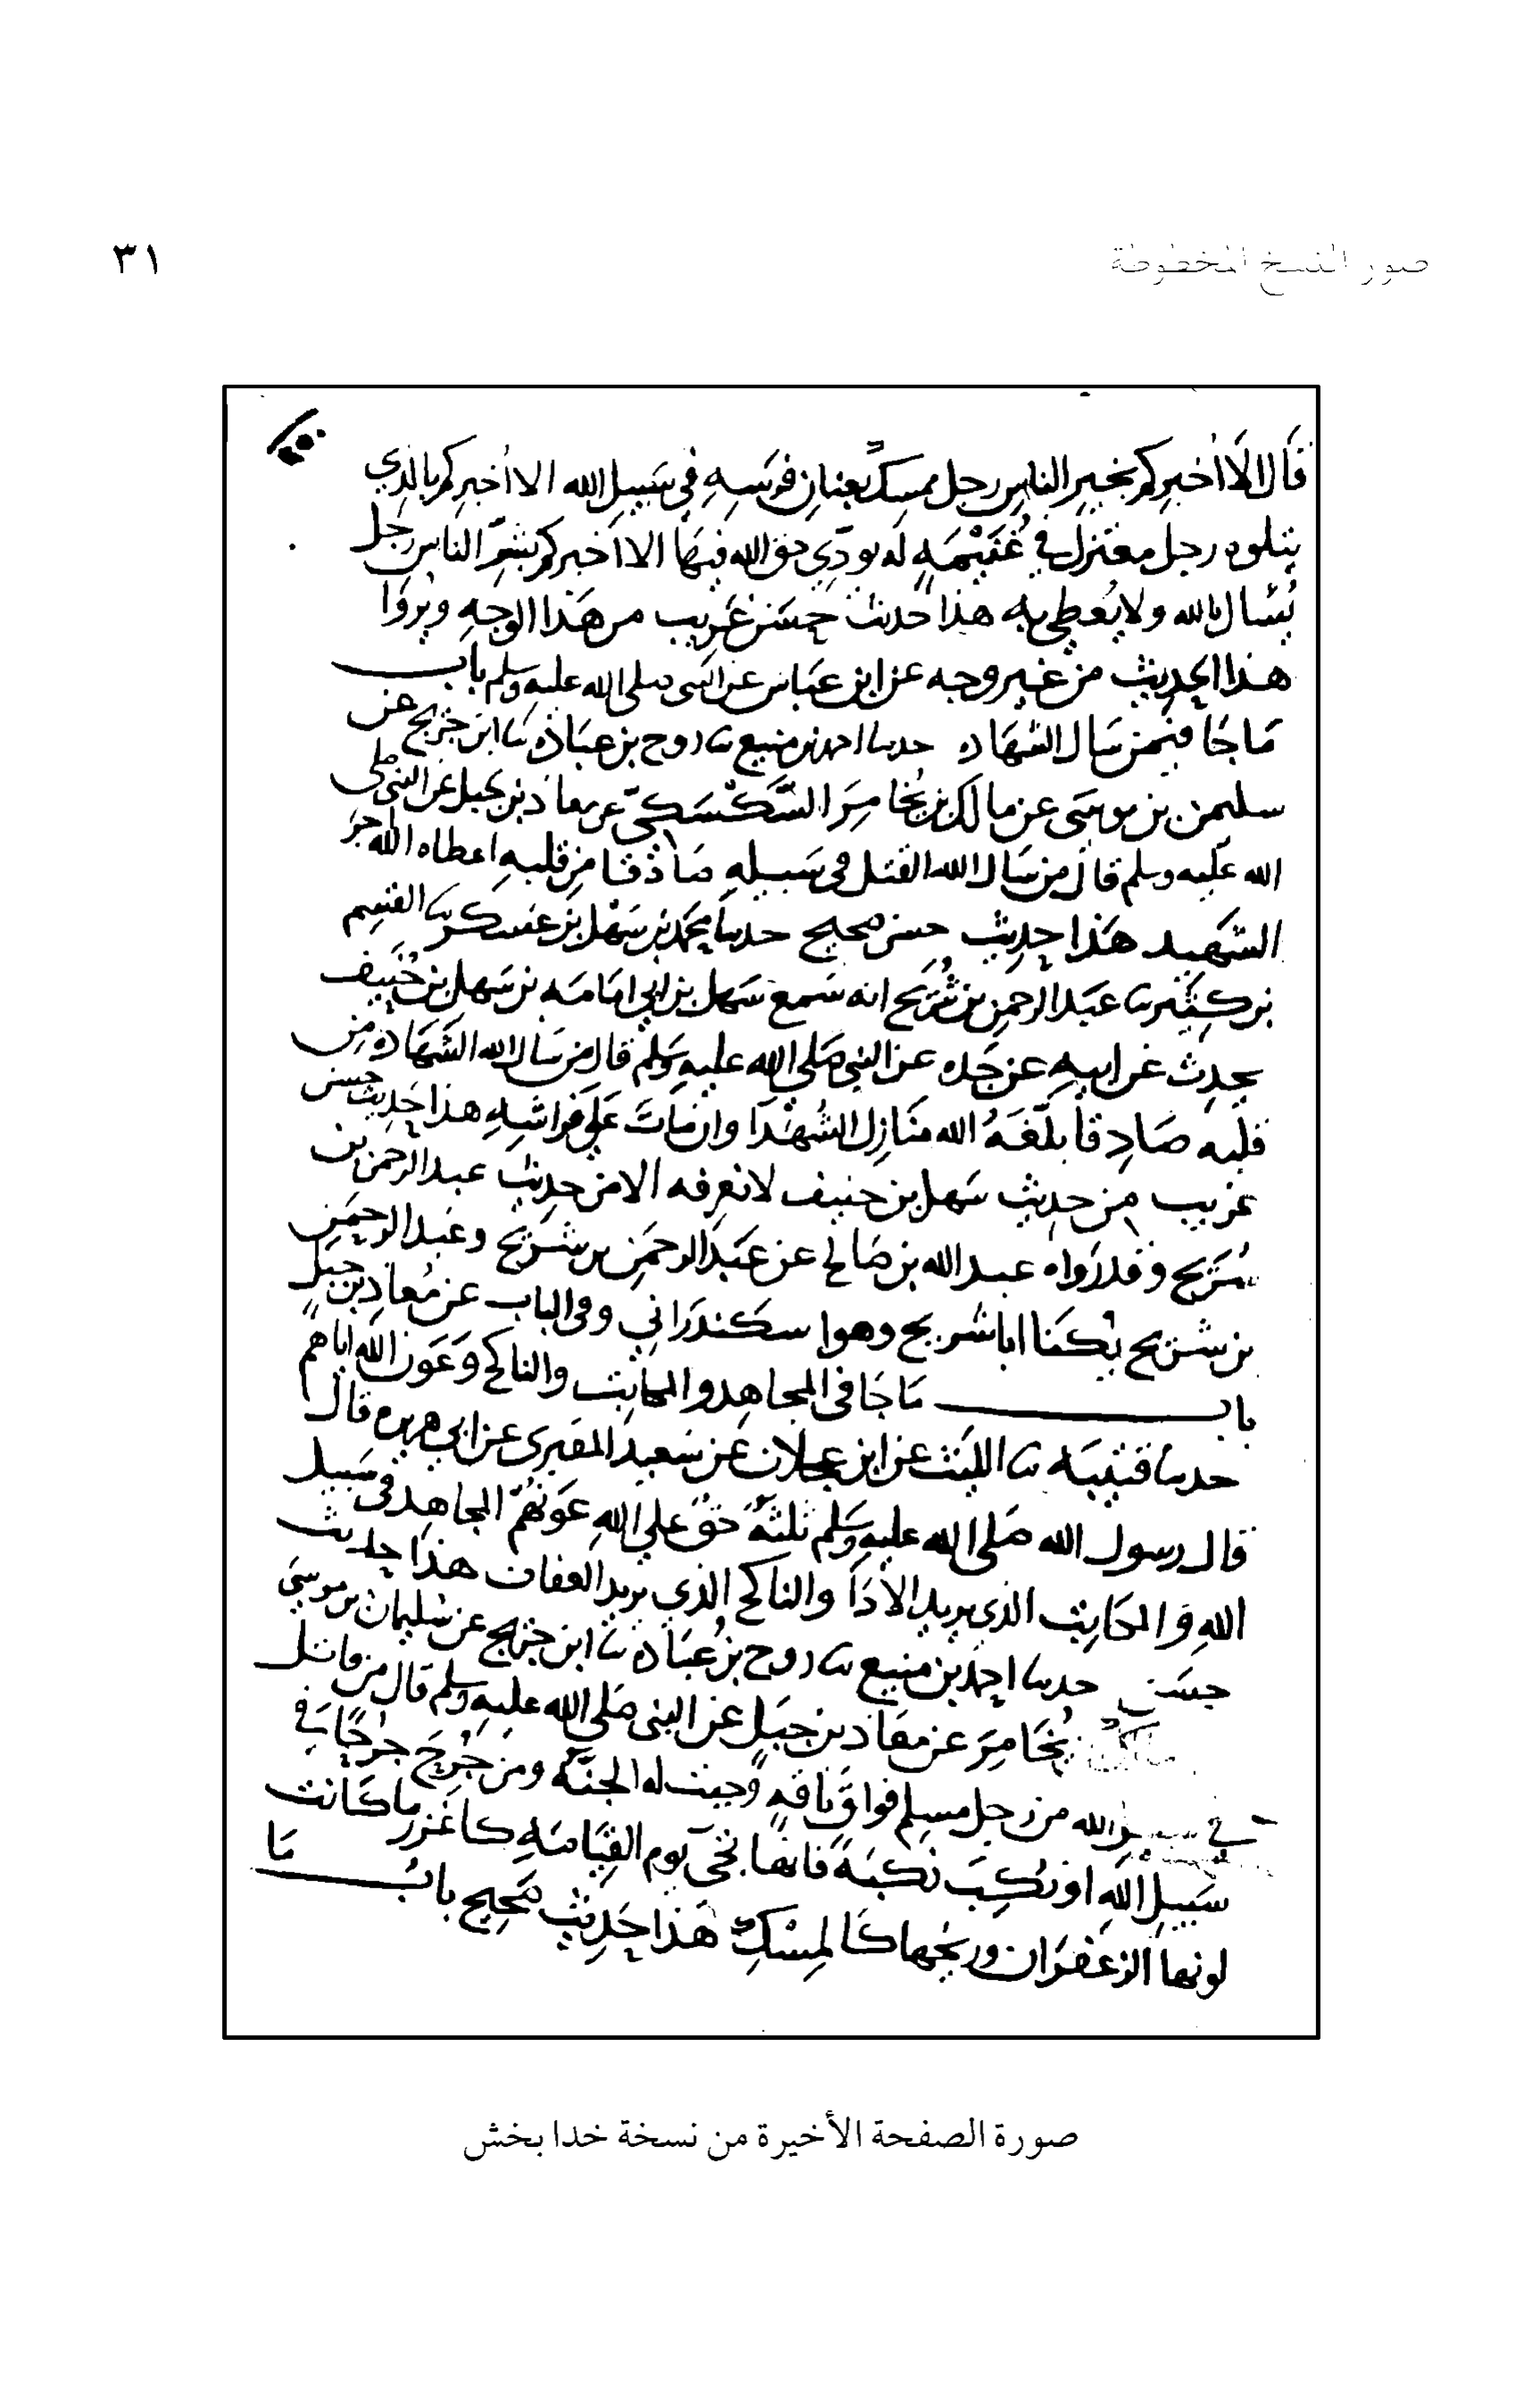 صور النسخ المخطوطة
٣١
قال الا اخبركم بخير الناس رجل ممسك بعنان فرسه في سبيل الله الا اخبركم بالذي
يتلوه رجل معتزل في غنيمه له يودي حق الله فيها الا اخبركم بشر الناس رجل
يُسال بالله ولا يُعطي به هذا حديث حسن غريب من هذا الوجه ويروا
هذا الحديث من غير وجه عن ابن عباس عن النبي صلى الله عليه وسلم باب
ما جا فيمن سال الشهاده حدثنا احمد بن منيع ثنا روح بن عباده ثنا ابن جريج عن
سليمن بن موسى عن مالك بن يُخامِرَ السَّكْسَكيّ عن معاذ بن جبل عن النبي صلى
الله عليه وسلم قال من سال الله القتل في سبيله صادقا من قلبه اعطاه الله اجر
الشهيد هذا حديث حسن صحيح حدثنا محمد بن سهل بن عسكر ثنا القسم
بن كثير ثنا عبد الرحمن بن شُرَيح انه سمع سهل بن ابي امامه بن سهل بن حُنَيف
يحدث عن ابيه عن جده عن النبي صلى الله عليه وسلم قال من سال الله الشهاده من
قلبه صادقا بلّغه الله منازل الشهدا وان مات على فراشه هذا حديث حسن
غريب من حديث سهل بن حنيف لا نعرفه الا من حديث عبد الرحمن بن
شريح وقد رواه عبد الله بن صالح عن عبد الرحمن بن شريح وعبد الرحمن
بن شريح يكنا ابا شريح وهوا سكندراني وفي الباب عن معاذ بن جبل
باب ما جا في المجاهد والمكاتب والناكح وعون الله اياهم
حدثنا قتيبه ثنا الليث عن ابن عجلان عن سعيد المقبري عن ابي هريره قال
قال رسول الله صلى الله عليه وسلم ثلثة حق على الله عونهم المجاهد في سبيل
الله والمكاتب الذي يريد الادا والناكح الذي يريد العفاف هذا حديث
حسن حدثنا احمد بن منيع ثنا روح بن عباده ثنا ابن جريج عن سليمان بن موسى
يُخامِرَ عن معاذ بن جبل عن النبي صلى الله عليه وسلم قال من قاتل
في سبيل الله من رجل مسلم فواق ناقه وجبت له الجنة ومن جُرِحَ جرحًا في
سبيل الله او نُكِبَ نكبة فانها تجي يوم القيامه كاغزر ما كانت
لونها الزعفران وريحها كالمسك هذا حديث صحيح باب ما
صورة الصفحة الأخيرة من نسخة خدا بخش